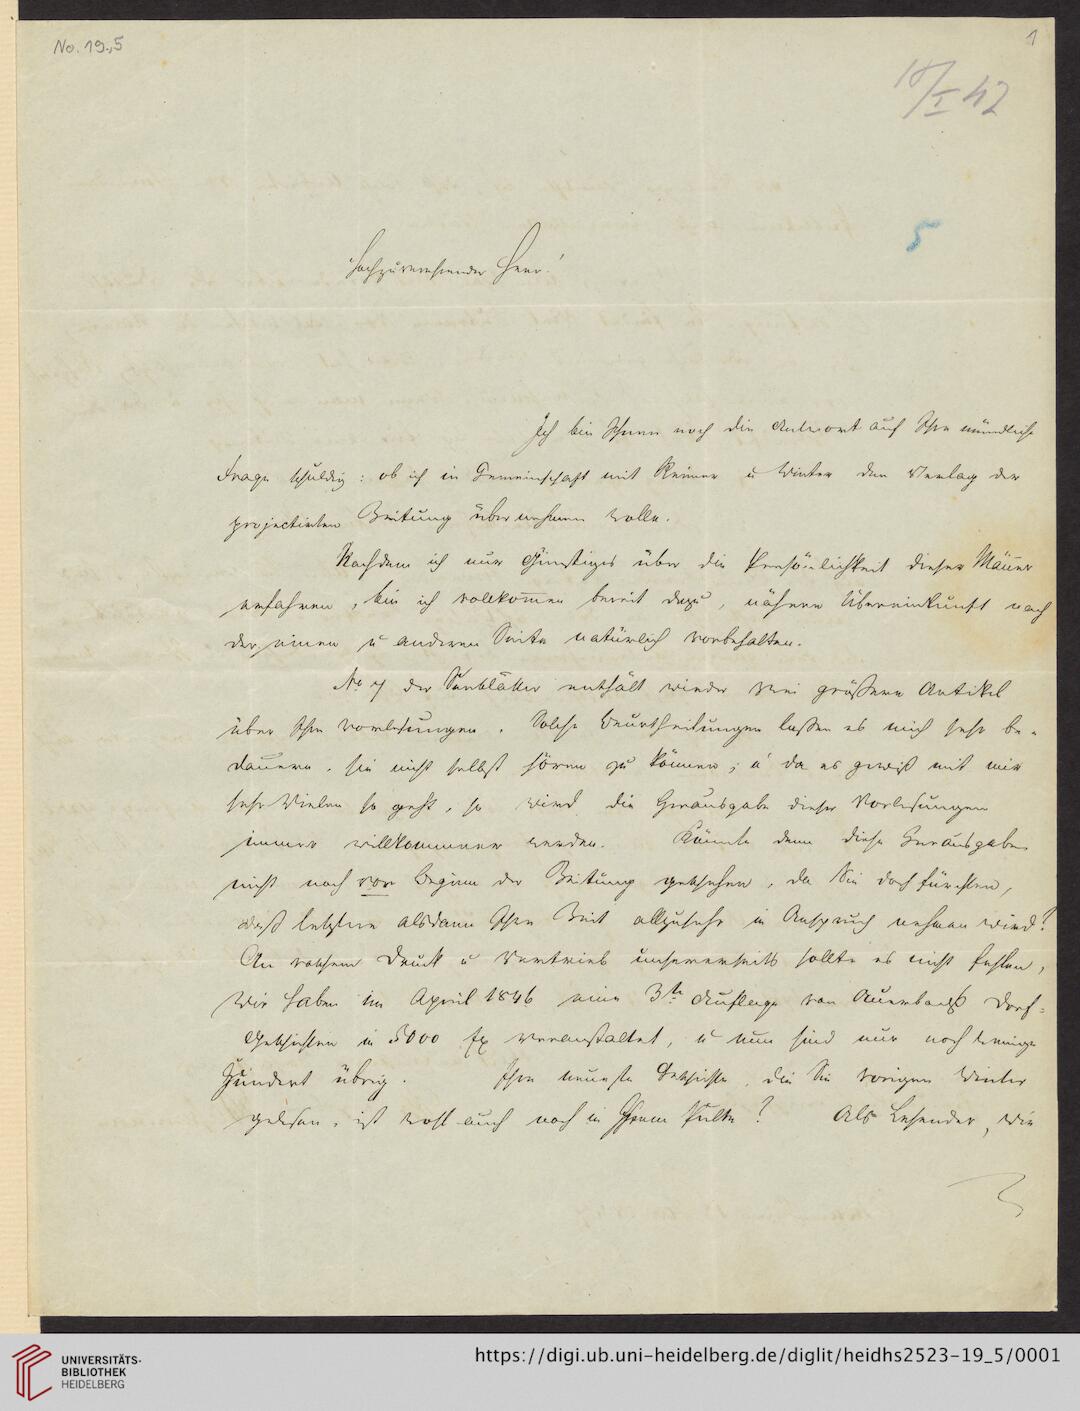 No. 19.,5
1
18/I 47
5
Hochzuverehrender Herr!
Ich bin Ihnen noch die Antwort auf Ihre mündliche
Frage schuldig: ob ich in Gemeinschaft mit u Winter den Verlag der
projectirten Zeitung übernehmen wolle.
Nachdem ich nur Günstiges über die Persönlichkeit dieser Männer
erfahren, bin ich vollkommen bereit dazu, nähere Übereinkunft nach
der einen u anderen Seite natürlich vorbehalten.
No 7 der Seeblätter enthält wieder zwei größere Artikel
über Ihre Vorlesungen. Solche Beurtheilungen lassen es mich sehr be-
dauern, sie nicht selbst hören zu können; u da es gewiß mit mir
sehr Vielen so geht, so wird die Herausgabe dieser Vorlesungen
immer willkommener werden. Könnte denn diese Herausgabe
nicht noch vor Beginn der Zeitung geschehen, da Sie doch fürchten,
daß letztere alsdann Ihre Zeit allzusehr in Anspruch nehmen wird?
An raschem Druck u Vertrieb unsererseits sollte es nicht fehlen,
Wir haben im April 1846 eine 3te Auflage von Auerbachs Dorf-
Geschichten in 5000 Ex veranstaltet, u nun sind nur noch wenige
Hundert übrig. Ihre neueste Geschichte, die Sie vorigen Winter
gelesen, ist wohl auch noch in Ihrem Pulte? Als Lesender, wie
UNIVERSITÄTS-
BIBLIOTHEK
HEIDELBERG
https://digi.ub.uni-heidelberg.de/diglit/heidhs2523-19_5/0001